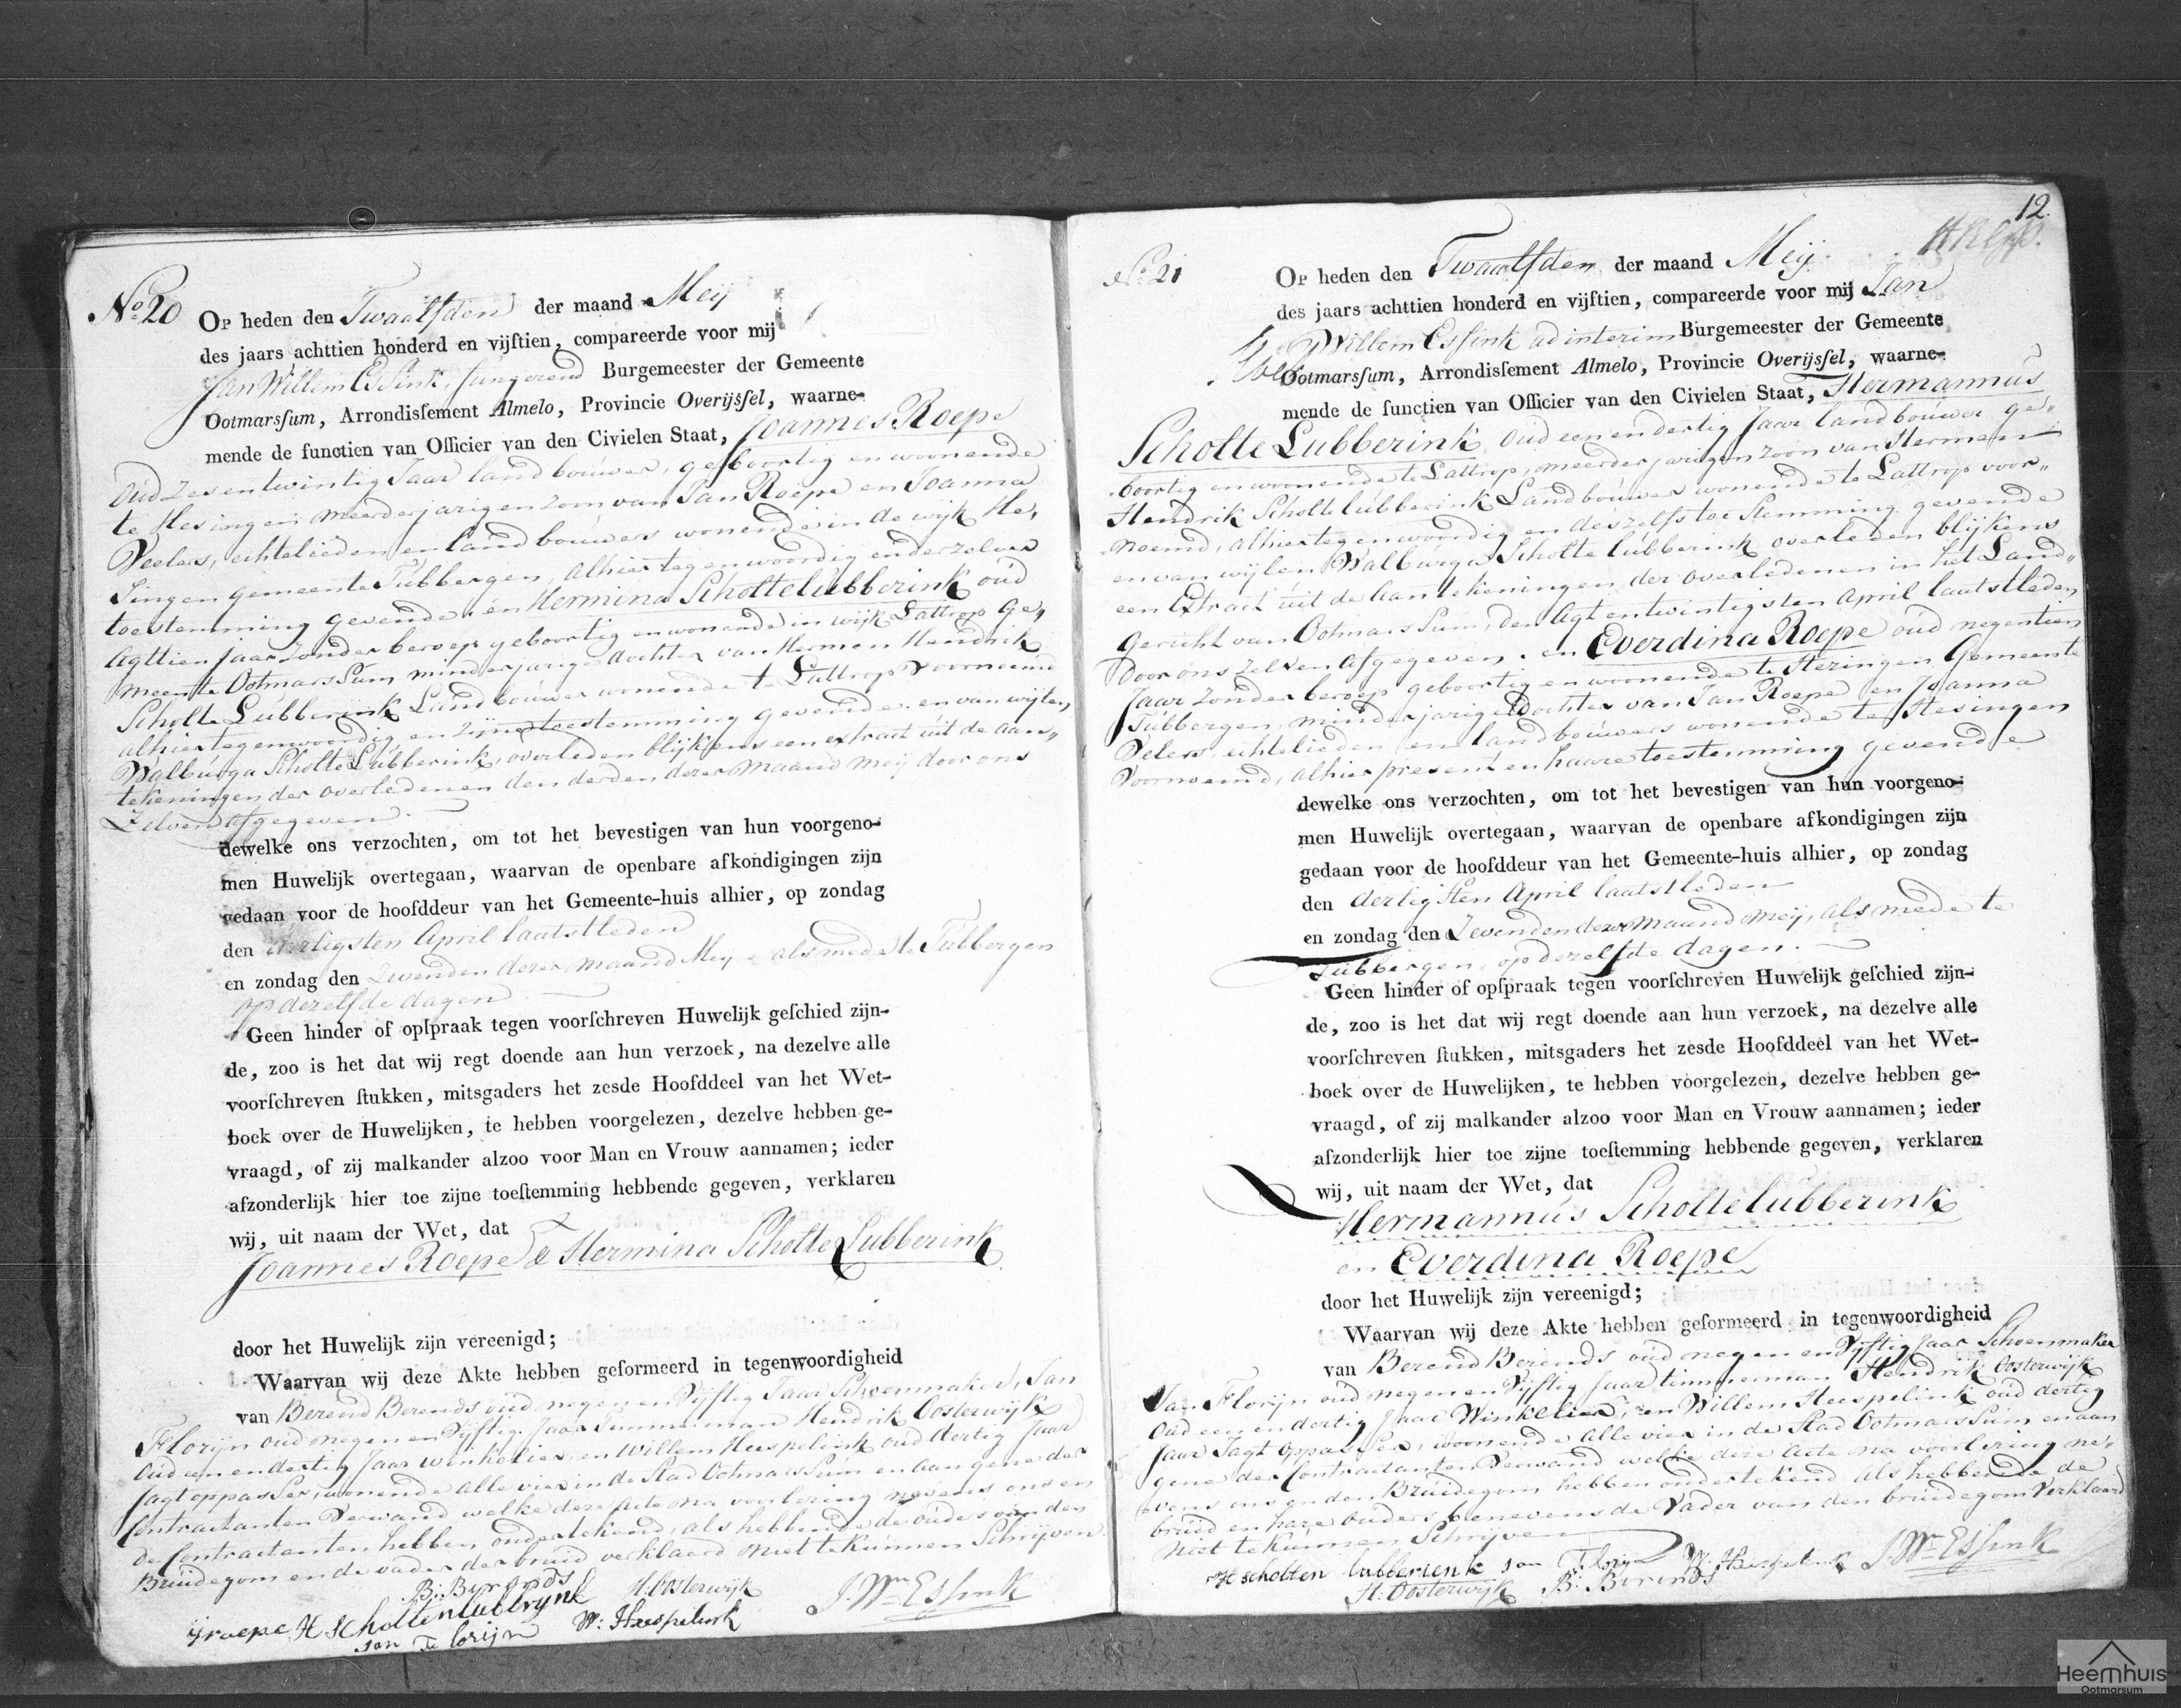 No 20
Op heden den Twaalfden der maand Meij
des jaars achttien honderd en vijftien, compareerde voor mij
Jan Willem Essink, fungerend Burgemeester der Gemeente
Ootmarsſum, Arrondisſement Almelo, Provincie Overijsſel, waarne-
mende de functien van Officier van den Civielen Staat, Joannes Roepe
oud Zesentwintig Jaar landbouwer, geboortig en woonende
te Hesingen meerderjarigen zoon van Jan Roepe en Joanna
Veelers, echtelieden en landbouwers wonende in de wijk He,
singen gemeente Tubbergen, alhier tegenwoordig en derzelver
toestemming gevende. en Hermina Scholte lubberink oud
Agttien jaar zonder beroep geboortig en wonende in wijk Lattrop Ge,,
meente OotmarsSum minderjarige dochter van Hermen Hendrik
Scholte Lubberink Landbouwer wonende te Lattrop voornoemd
alhier tegenwoordig en zijne toestemming gevende. en van wijlen
Walburga Scholte Lubberink, overleden blijkens een extract uit de aan,,
tekeningen der overledenen den derden dezer maand meij door ons
Zelven afgegeven.
dewelke ons verzochten, om tot het bevestigen van hun voorgeno-
men Huwelijk overtegaan, waarvan de openbare afkondigingen zijn
gedaan voor de hoofddeur van het Gemeente-huis alhier, op zondag
den dertigsten April laatstleden
en zondag den Zevenden dezer maand Meij - als mede te Tubbergen
op dezelfde dagen
Geen hinder of opſpraak tegen voorſchreven Huwelijk geſchied zijn-
de, zoo is het dat wij regt doende aan hun verzoek, na dezelve alle
voorſchreven ſtukken, mitsgaders het zesde Hoofddeel van het Wet-
boek over de Huwelijken, te hebben voorgelezen, dezelve hebben ge-
vraagd, of zij malkander alzoo voor Man en Vrouw aannamen; ieder
afzonderlijk hier toe zijne toeſtemming hebbende gegeven, verklaren
wij, uit naam der Wet, dat
Joannes Roepe & Hermina Scholte Lubberink
door het Huwelijk zijn vereenigd;
Waarvan wij deze Akte hebben geformeerd in tegenwoordigheid
van Berend Berends oud negen en Vijftig Jaar Schoenmaker, Jan
Florijn oud negen en Vijftig Jaar Timmerman Hendrik Oosterwijk
Oud een en dertig Jaar winkelier, en Willem Heespelink oud dertig Jaar
Jagtoppasser, wonende alle vier in de Stad OotmarsSum en aan gene der
Contractanten Verwand welke deze Acte na voorlezing nevens ons en
de Contractanten hebben ondertekend, als hebbende de ouders van den
Bruidegom en de vader der bruid verklaard niet te kunnen Schrijven.
B: Berends H. Oosterwijk
ijroepe H scholtenlubbrynk W: Heespelink J. Wm Essink
jan Florijn
12.
No 21
Op heden den Twaalfden der maand Meij
des jaars achttien honderd en vijftien, compareerde voor mij Jan
Willem Essink ad interim Burgemeester der Gemeente
Ootmarsſum, Arrondisſement Almelo, Provincie Overijsſel, waarne-
mende de functien van Officier van den Civielen Staat, Hermannus
Scholte Lubberink, Oud een en dertig Jaar landbouwer ge,,
boortig en woonende te Lattrop, meerderjarigen zoon van Hermen
Hendrik Scholte lubberink Landbouwer wonende te Lattrop voor,,
noemd, alhier tegenwoordig en deszelfs toe Stemming gevende
en van wijlen Walburga Scholte lubberink overleden blijkens
een Extract uit de Aantekeningen der overledenen in het Land,,
Gericht van OotmarsSum, den Agt entwintigsten April laatstleden
door ons zelven afgegeven. en Everdina Roepe oud negentien
Jaar zonder beroep geboortig en woonende te Hezingen Gemeente
Tubbergen, minderjarige dochter van Jan Roepe en Joanna
Velers, echtelieden en landbouwers wonende te Hesingen
Voornoemd, alhier present en haare toestemming gevende
dewelke ons verzochten, om tot het bevestigen van hun voorgeno-
men Huwelijk overtegaan, waarvan de openbare afkondigingen zijn
gedaan voor de hoofddeur van het Gemeente-huis alhier, op zondag
den dertigsten April laatstleden
en zondag den Zevenden dezer maand meij, als mede te
Tubbergen, op dezelfde dagen.
Geen hinder of opſpraak tegen voorſchreven Huwelijk geſchied zijn-
de, zoo is het dat wij regt doende aan hun verzoek, na dezelve alle
voorſchreven ſtukken, mitsgaders het zesde Hoofddeel van het Wet-
boek over de Huwelijken, te hebben voorgelezen, dezelve hebben ge-
vraagd, of zij malkander alzoo voor Man en Vrouw aannamen; ieder
afzonderlijk hier toe zijne toeſtemming hebbende gegeven, verklaren
wij, uit naam der Wet, dat
Hermannus Scholte lubberink
en Everdina Roepe
door het Huwelijk zijn vereenigd;
Waarvan wij deze Akte hebben geformeerd in tegenwoordigheid
van Berend Berends oud negen en Vyftig Jaar Schoenmaker
Jan Florijn oud negen en Vijftig Jaar timmerman Hendrik Oosterwijk
Oud een en dertig Jaar Winkelier, en Willem Heespelink oud dertig
Jaar Jagt oppasser, woonende alle vier in de Stad OotmarsSum en aan
gene der Contractanten Verwand welke deze Acte na voorlezing ne,,
vens ons en den Bruidegom hebben ondertekend als hebbende de
bruid en hare ouders benevens de Vader van den bruidegom Verklaard
niet te kunnen Schrijven
H scholten lubberienk jan Florijn W: Heespelink J Wm Essink
H. Oosterwijk B: Berends
Heemhuis
Ootmarsum